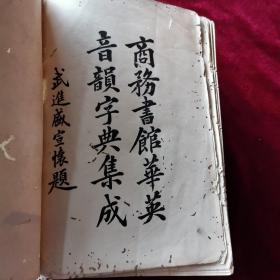 商務書館華英
音韻字典集成
武進盛宣懷題